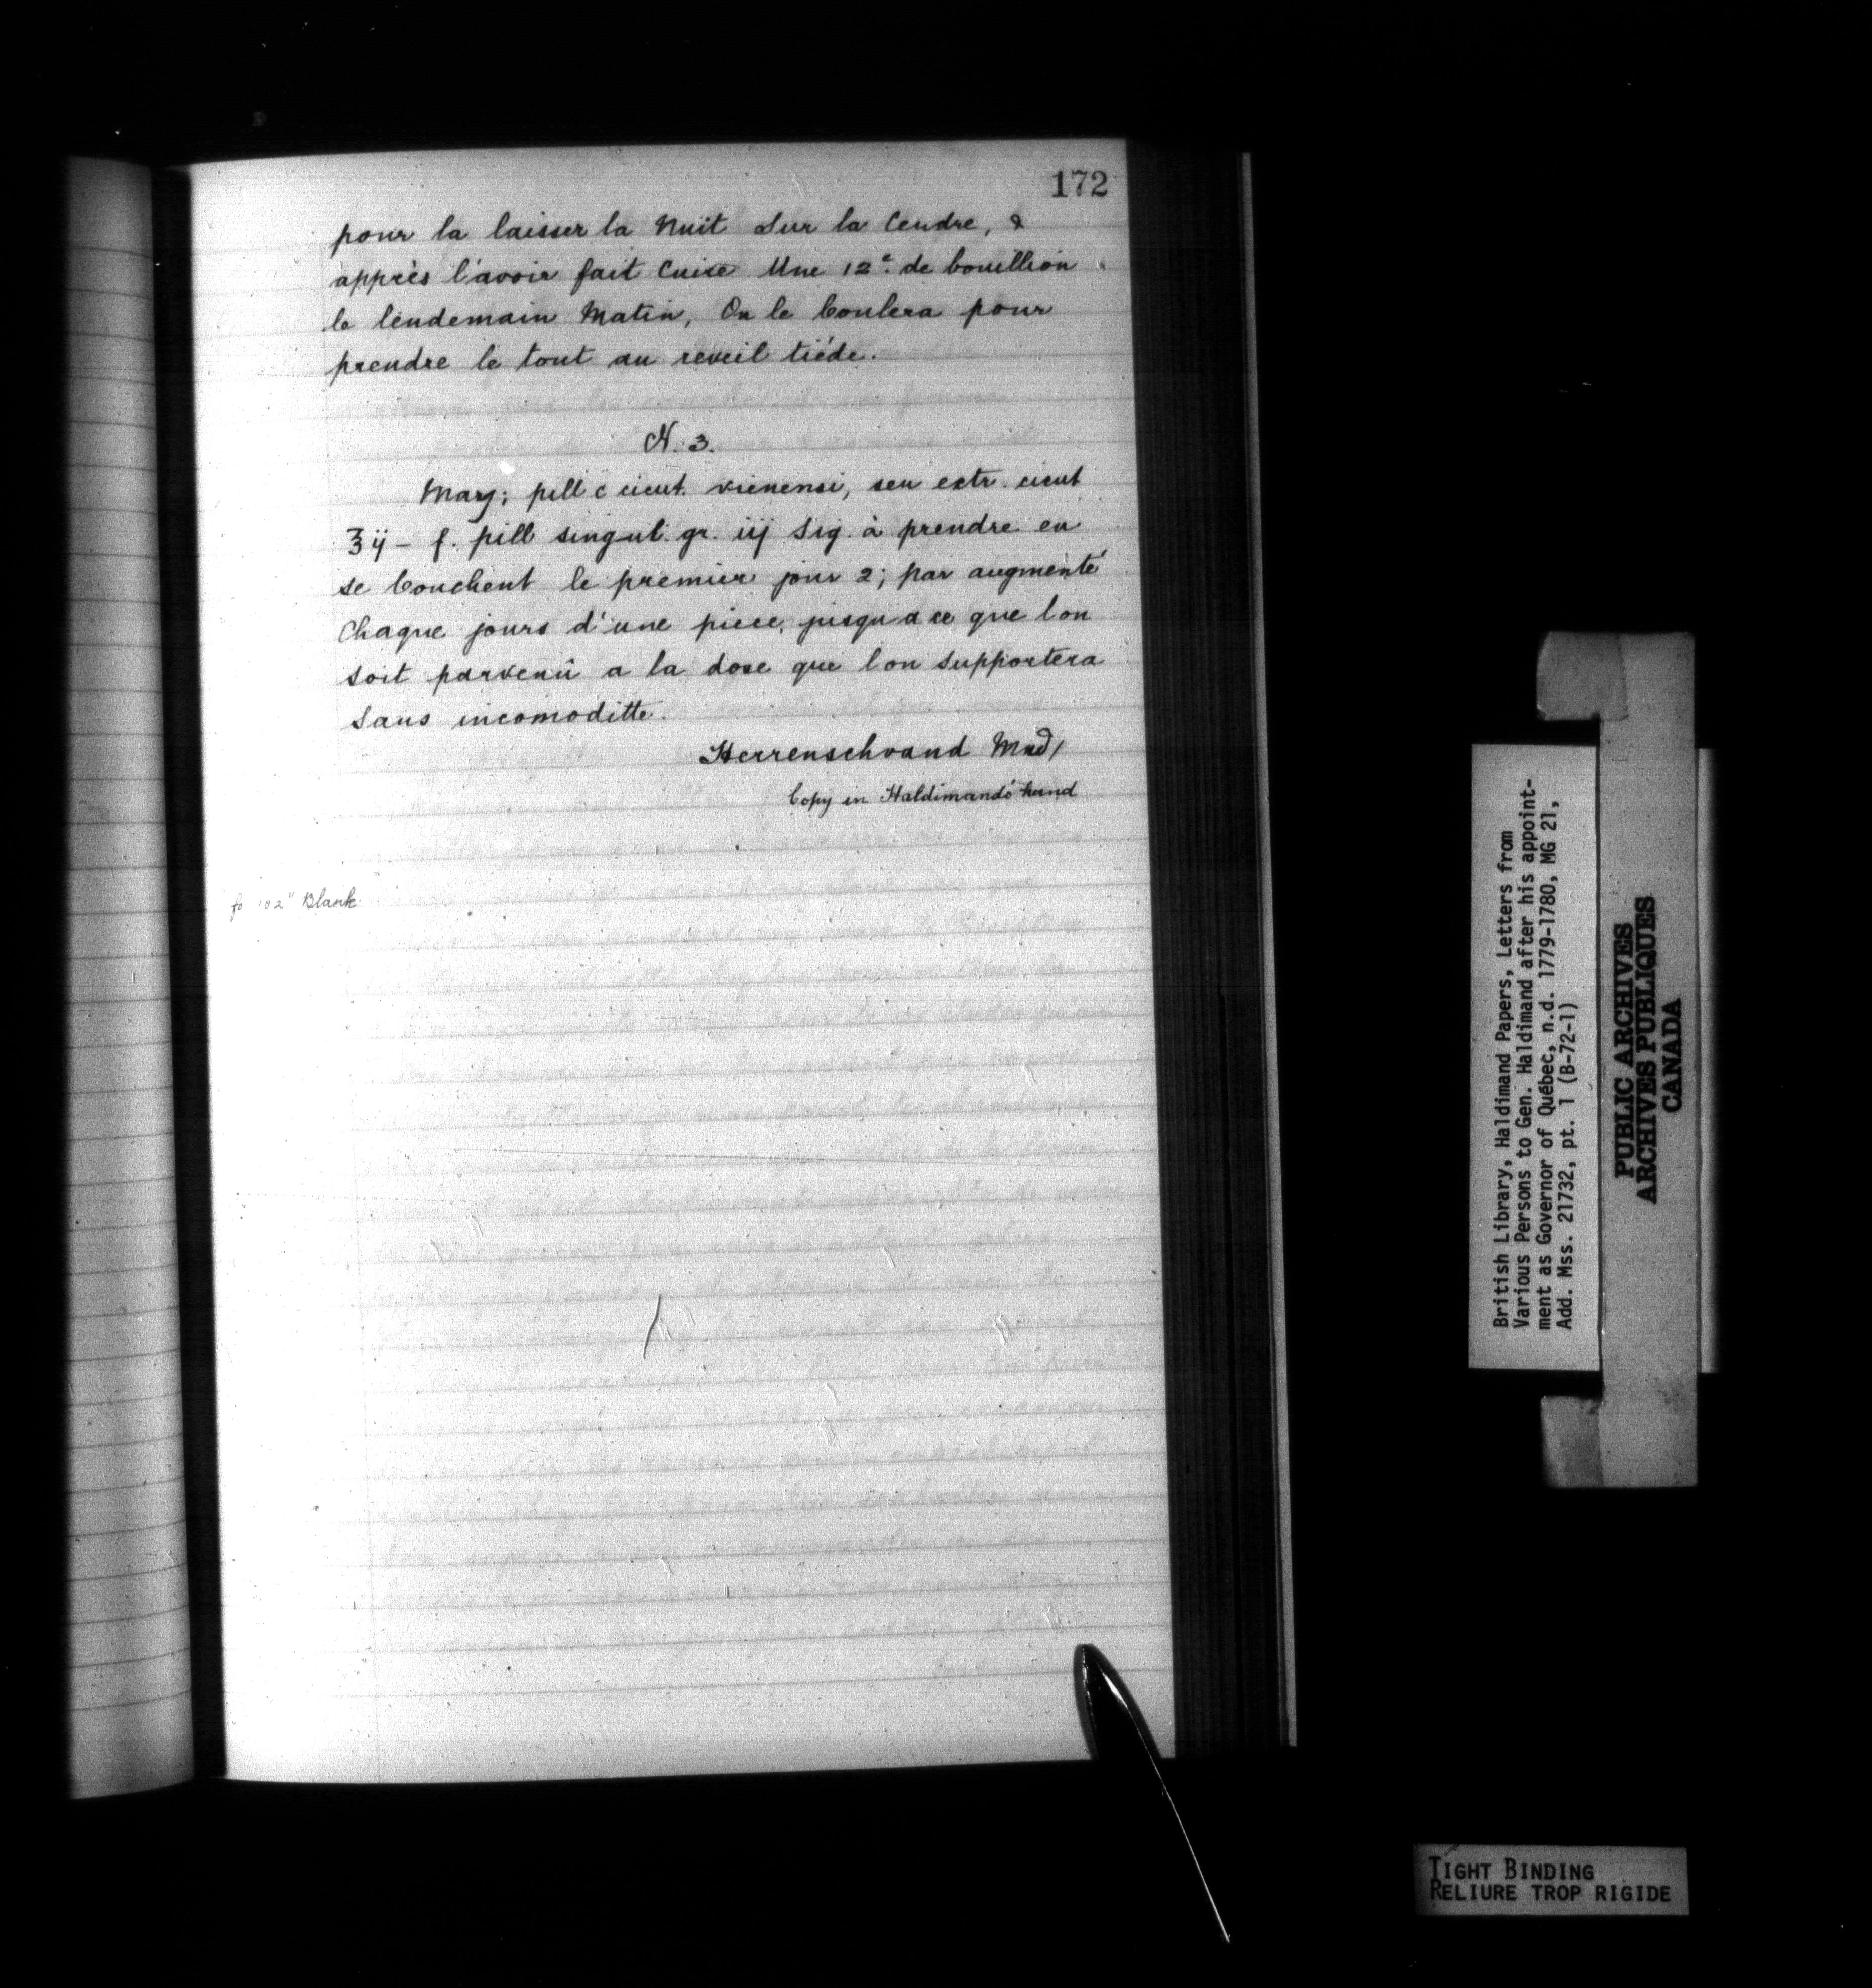 172
pour la laisser la Nuit Sur la Cendre, &
apprès l'avoir fait Cuire Une 12e. de bouillion
le lendemain Matin, On le Coulera pour
prendre le tout au reveil tiéde.
N. 3.
Mass; pill c cicut. vienensi, seu extr. cicut
ʒij - f. pill singul. gr. iij Sig. à prendre en
se Couchent le premier jour 2; par augmenté
Chaque jours d'une piece, jusqu a ce que lon
soit parvenû a la dose que lon supportera
sans incomoditte.
Herrenschvand Md/
Copy in Haldimand's hand
fo 102 Blank
British Library, Haldimand Papers, Letters from
Various Persons to Gen. Haldimand after his appoint-
ment as Governor of Québec, n.d. 1779-1780, MG 21,
Add. Mss. 21732, pt. 1 (B-72-1)
PUBLIC ARCHIVES
ARCHIVES PUBLIQUES
CANADA
TIGHT BINDING
RELIURE TROP RIGIDE